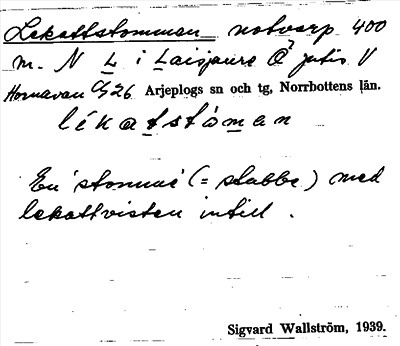 Lekattstomman notvarp 400
m. N L i Laisjaure Ö jutis V
Hornavan 26 Arjeplogs sn och tg, Norrbottens län.
lékatstòman
En 'stomme' (= stubbe) med
lekattvisten intill.
Sigvard Wallström, 1939.